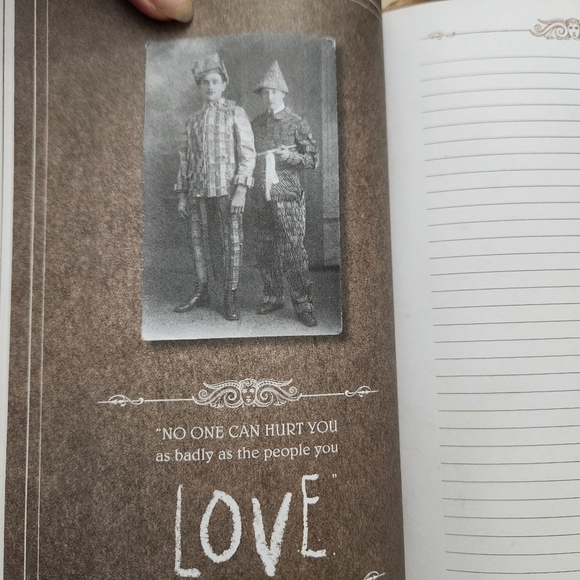 "NO ONE CAN HURT YOU
as badly as the people you
LOVE."